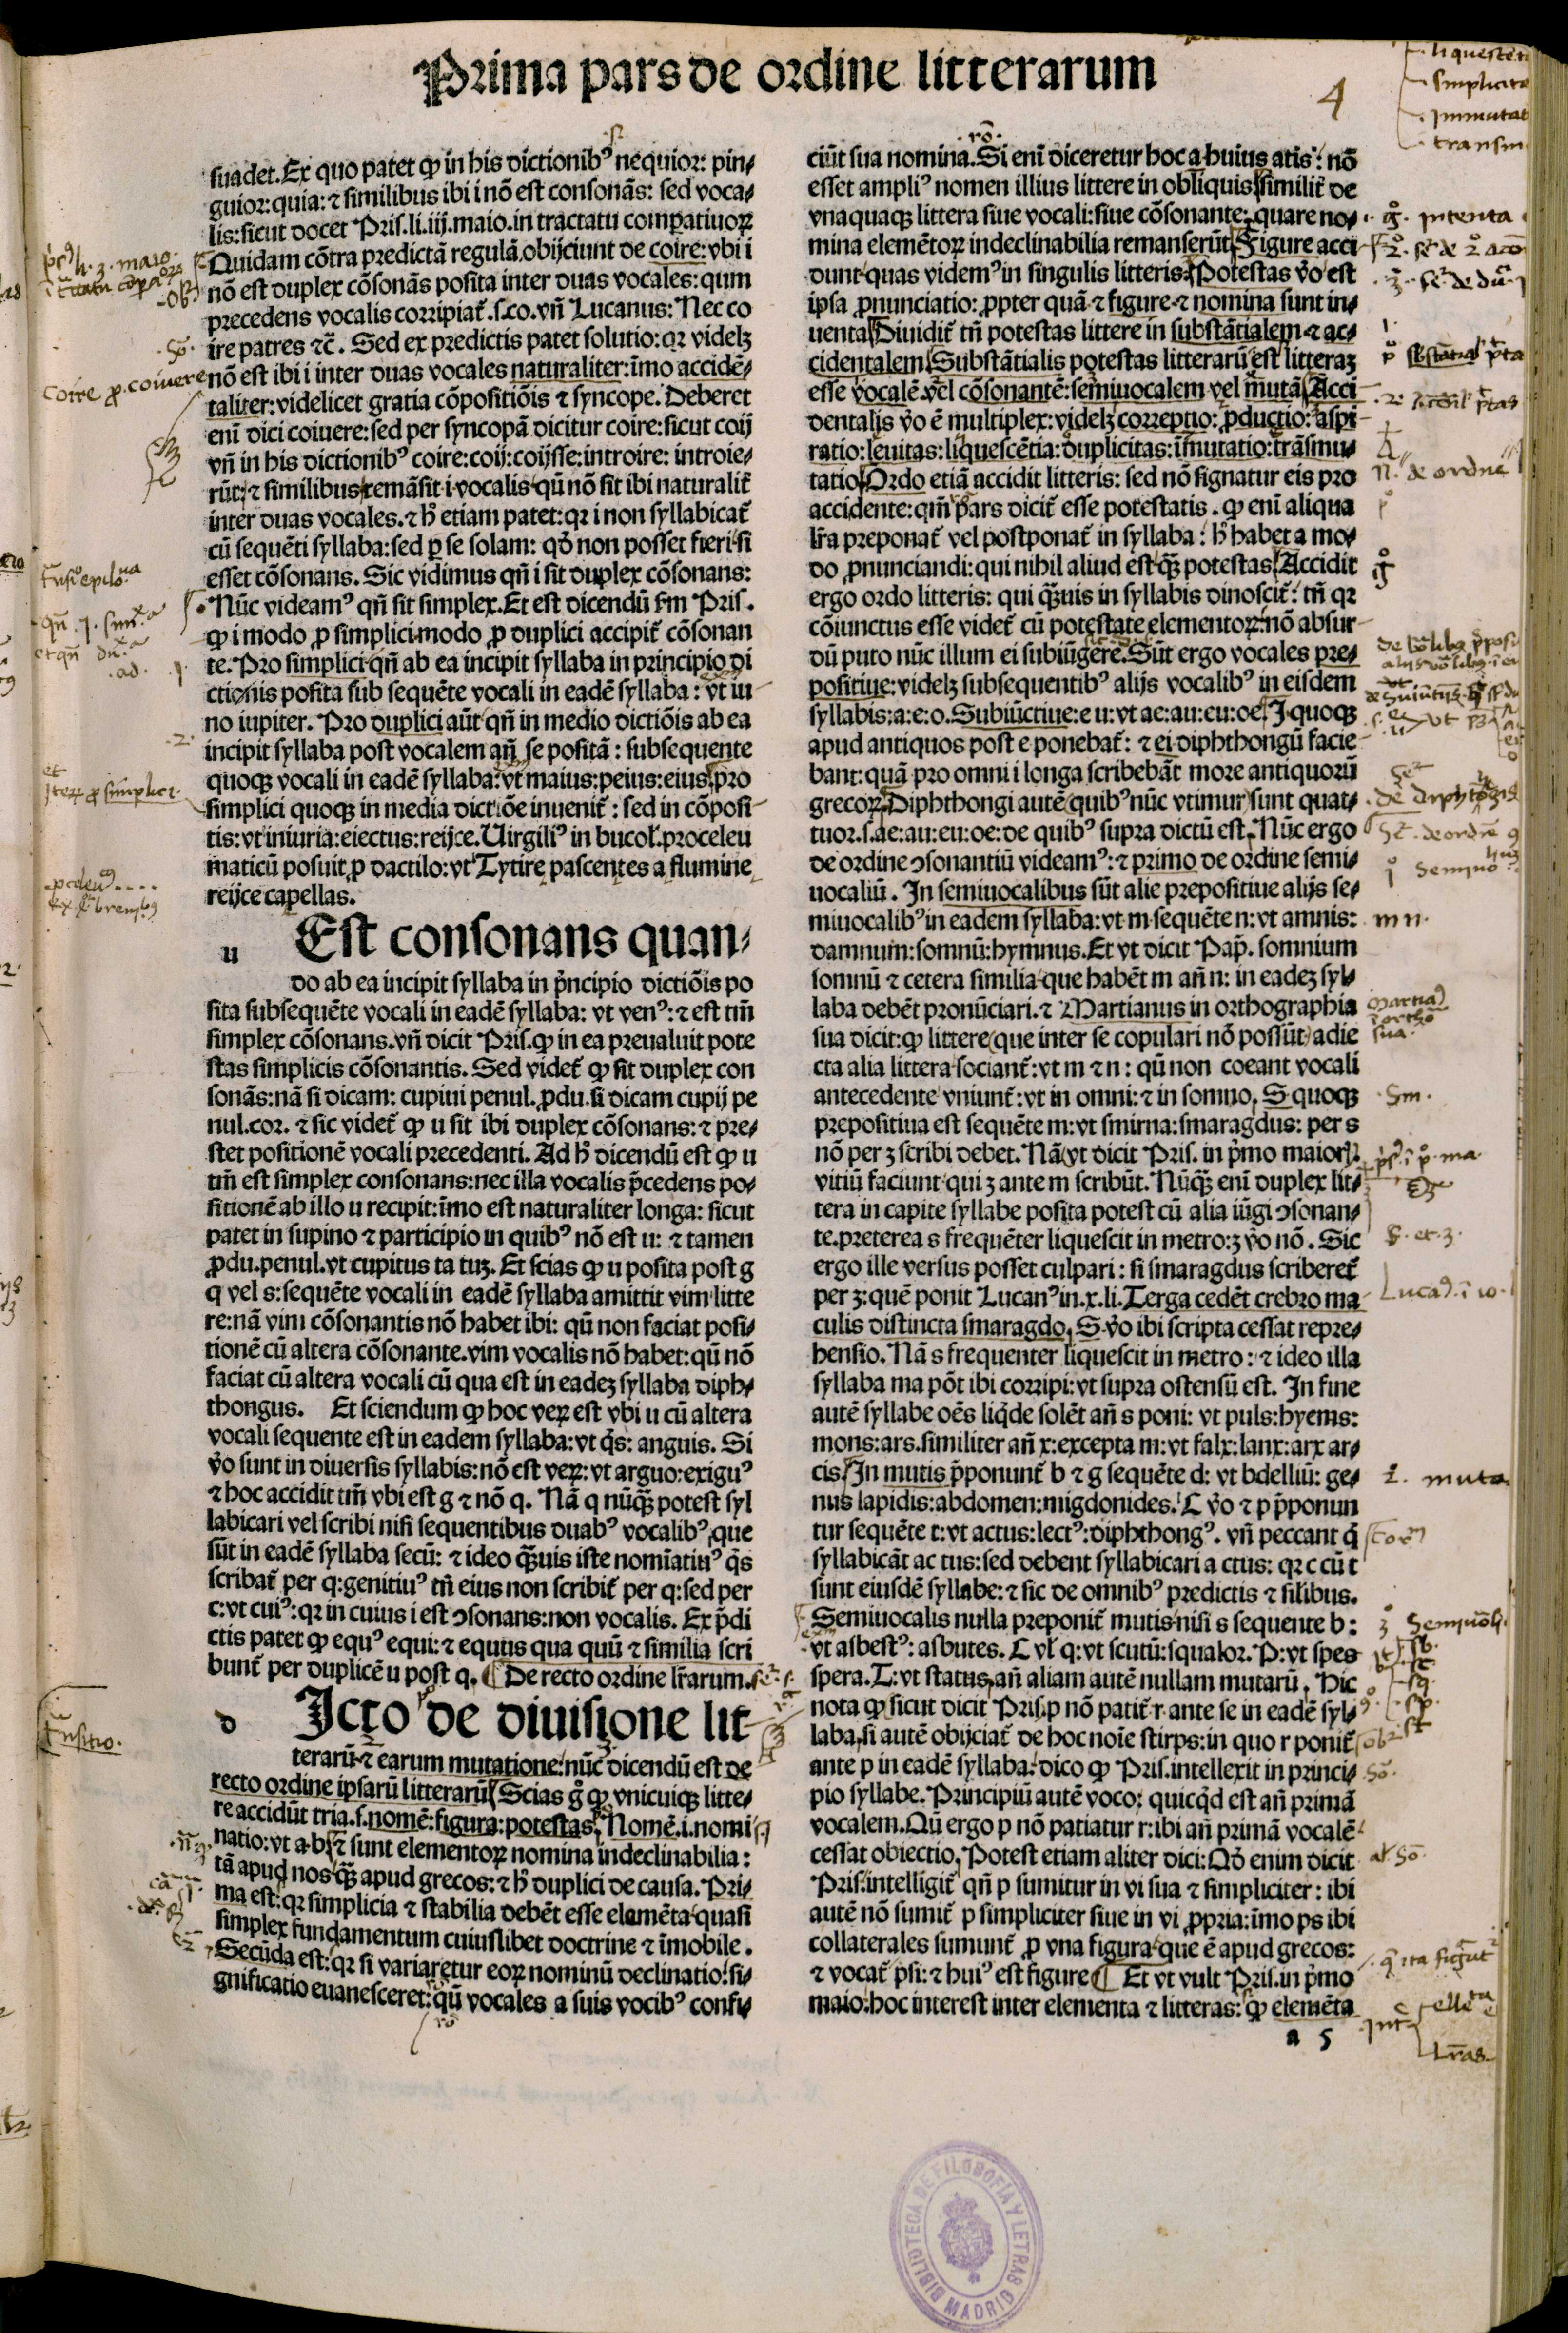 Prima pars de ordine litterarum
4
suadet. Ex quo patet ꝙ in his dictionibꝰ nequior: pin⸗
guior: quia: ⁊ similibus ibi i nō est consonās: sed voca⸗
lis: sicut docet Pris. li. iij. maio. in tractatu comꝑatiuoꝝ
Quidam cōtra predictā regulā, obijciunt de coire: vbi i
nō est duplex cōsonās posita inter duas vocales: qum
precedens vocalis corripiat̄. s. co. vn̄ Lucanus: Nec co
ire patres ⁊c̄. Sed ex predictis patet solutio: qꝛ videlꝫ
nō est ibi i inter duas vocales naturaliter: īmo accidē⸗
taliter: videlicet gratia cōpositiōis ⁊ syncope. Deberet
enī dici coiuere: sed per syncopā dicitur coire: sicut coij
vn̄ in his dictionibꝰ coire: coij: coijsse: introire: introie⸗
rūt: ⁊ similibus remāsit i vocalis qū nō sit ibi naturalit̄
inter duas vocales. ⁊ h̄ etiam patet: qꝛ i non syllabicat̄
cū sequēti syllaba: sed ꝑ se solam: qd̄ non posset fieri si
esset cōsonans. Sic vidimus qn̄ i sit duplex cōsonans:
Nūc videamꝰ qn̄ sit simplex. Et est dicendū ſm Pris.
ꝙ i modo ꝓ simplici modo ꝓ duplici accipit̄ cōsonan
te. Pro simplici qn̄ ab ea incipit syllaba in principio di
ctionis posita sub sequēte vocali in eadē syllaba: vt iu
no iupiter. Pro duplici aūt qn̄ in medio dictiōis ab ea
incipit syllaba post vocalem an̄ se positā: subsequente
quoqꝫ vocali in eadē syllaba: vt maius: peius: eius, pro
simplici quoqꝫ in media dictiōe inuenit̄: sed in cōposi⸗
tis: vt iniuria: eiectus: reijce. Uirgiliꝰ in bucol. proceleu
maticū posuit ꝓ dactilo: vt Tytire pascentes a flumine
reijce capellas.
u Est consonans quan⸗
do ab ea incipit syllaba in p̄ncipio dictiōis po
sita subsequēte vocali in eadē syllaba: vt venꝰ: ⁊ est tm̄
simplex cōsonans. vn̄ dicit Pris. ꝙ in ea preualuit pote
stas simplicis cōsonantis. Sed videt̄ ꝙ sit duplex con
sonās: nā si dicam: cupiui penul. ꝓdu. si dicam cupij pe
nul. cor. ⁊ sic videt̄ ꝙ u sit ibi duplex cōsonans: ⁊ pre⸗
stet positionē vocali precedenti. Ad h̄ dicendū est ꝙ u
tm̄ est simplex consonans: nec illa vocalis p̄cedens po⸗
sitionē ab illo u recipit: īmo est naturaliter longa: sicut
patet in supino ⁊ participio in quibꝰ nō est u: ⁊ tamen
ꝓdu. penul. vt cupitus ta tuꝫ. Et scias ꝙ u posita post g
q vel s: sequēte vocali in eadē syllaba amittit vim litte
re: nā vim cōsonantis nō habet ibi: qū non faciat posi⸗
tionē cū altera cōsonante. vim vocalis nō habet: qū nō
faciat cū altera vocali cū qua est in eadeꝫ syllaba diph⸗
thongus. Et sciendum ꝙ hoc veꝝ est vbi u cū altera
vocali sequente est in eadem syllaba: vt q̄s: anguis. Si
v̄o sunt in diuersis syllabis: nō est veꝝ: vt arguo: exiguꝰ
⁊ hoc accidit tm̄ vbi est g ⁊ nō q. Nā q nūqꝫ̄ potest syl
labicari vel scribi nisi sequentibus duabꝰ vocalibꝰ, que
sūt in eadē syllaba secū: ⁊ ideo qꝫ̄uis iste nomīatiuꝰ q̄s
scribat̄ per q: genitiuꝰ tn̄ eius non scribit̄ per q: sed per
c: vt cuiꝰ: qꝛ in cuius i est ɔsonans: non vocalis. Ex p̄di
ctis patet ꝙ equꝰ equi: ⁊ equus qua quū ⁊ similia scri
bunt̄ per duplicē u post q. ¶ De recto ordine lr̄arum.
d Icto de diuisione lit⸗
terarū ⁊ earum mutatione: nūc dicendū est de
recto ordine ipsarū litterarū. Scias g̊ ꝙ vnicuiqꝫ litte⸗
re accidūt tria. s. nomē: figura: potestas. Nomē. i. nomi
natio: vt a. b. ⁊ sunt elementoꝝ nomina indeclinabilia:
tā apud nos qꝫ̄ apud grecos: ⁊ h̄ duplici de causa. Pri⸗
ma est: qꝛ simplicia ⁊ stabilia debēt esse elemēta quasi
simplex fundamentum cuiuslibet doctrine ⁊ īmobile.
Secūda est: qꝛ si variaretur eoꝝ nominū declinatio: si⸗
gnificatio euanesceret: qū vocales a suis vocibꝰ confi⸗
ciūt sua nomina. Si enī diceretur hoc a huius atis: nō
esset ampliꝰ nomen illius littere in obliquis similit̄ de
vnaquaqꝫ littera siue vocali: siue cōsonante: quare no⸗
mina elemētoꝝ indeclinabilia remanserūt. Figure acci
dunt quas videmꝰ in singulis litteris. Potestas v̄o est
ipsa ꝓnunciatio: ꝓpter quā ⁊ figure ⁊ nomina sunt in⸗
uenta. Diuidit̄ tn̄ potestas littere in substātialem ⁊ ac⸗
cidentalem. Substātialis potestas litterarū est litteraꝫ
esse vocalē vel cōsonantē: semiuocalem vel mutā. Acci
dentalis v̄o ē multiplex: videlꝫ correptio: ꝓductio: aspi
ratio: leuitas: liquescētia: duplicitas: īmutatio: trāsmu⸗
tatio. Ordo etiā accidit litteris: sed nō signatur eis pro
accidente: qm̄ pars dicit̄ esse potestatis. ꝙ enī aliqua
lr̄a preponat̄ vel postponat̄ in syllaba: h̄ habet a mo⸗
do ꝓnunciandi: qui nihil aliud est qꝫ̄ potestas. Accidit
ergo ordo litteris: qui qꝫ̄uis in syllabis dinoscit̄: tn̄ qꝛ
cōiunctus esse videt̄ cū potestate elementoꝝ: nō absur
dū puto nūc illum ei subiūgere. Sūt ergo vocales pre⸗
positiue: videlꝫ subsequentibꝰ alijs vocalibꝰ in eisdem
syllabis: a: e: o. Subiūctiue: e u: vt ae: au: eu: oe. J quoqꝫ
apud antiquos post e ponebat̄: ⁊ ei diphthongū facie
bant: quā pro omni i longa scribebāt more antiquorū
grecoꝝ. Diphthongi autē quibꝰ nūc vtimur sunt quat⸗
tuor. s. ae: au: eu: oe: de quibꝰ supra dictū est. Nūc ergo
de ordine ɔsonantiū videamꝰ: ⁊ primo de ordine semi⸗
uocaliū. In semiuocalibus sūt alie prepositiue alijs se⸗
miuocalibꝰ in eadem syllaba: vt m sequēte n: vt amnis:
damnum: somnū: hymnus. Et vt dicit Pap̄. somnium
somnū ⁊ cetera similia que habēt m an̄ n: in eadeꝫ syl⸗
laba debēt pronūciari. ⁊ Martianus in orthographia
sua dicit: ꝙ littere que inter se copulari nō possūt adie
cta alia littera sociant̄: vt m ⁊ n: qū non coeant vocali
antecedente vniunt̄: vt in omni: ⁊ in somno. S quoqꝫ
prepositiua est sequēte m: vt smirna: smaragdus: per s
nō per ꝫ scribi debet. Nā vt dicit Pris. in p̄mo maiori
vitiū faciunt qui ꝫ ante m scribūt. Nūqꝫ̄ enī duplex lit⸗
tera in capite syllabe posita potest cū alia iūgi ɔsonan⸗
te. preterea s frequēter liquescit in metro: ꝫ v̄o nō. Sic
ergo ille versus posset culpari: si smaragdus scriberet̄
per ꝫ: quē ponit Lucanꝰ in. x. li. Terga cedēt crebro ma
culis distincta smaragdo. S v̄o ibi scripta cessat repre⸗
hensio. Nā s frequenter liquescit in metro: ⁊ ideo illa
syllaba ma pōt ibi corripi: vt supra ostensū est. In fine
autē syllabe oēs liq̄de solēt an̄ s poni: vt puls: hyems:
mons: ars. similiter an̄ x: excepta m: vt falx: lanx: arx ar⸗
cis. In mutis p̄ponunt̄ b ⁊ g sequēte d: vt bdelliū: ge⸗
nus lapidis: abdomen: migdonides. C v̄o ⁊ p p̄ponun
tur sequēte t: vt actus: lectꝰ: diphthongꝰ. vn̄ peccant q̄
syllabicāt ac tus: sed debent syllabicari a ctus: qꝛ c cū t
sunt eiusdē syllabe: ⁊ sic de omnibꝰ predictis ⁊ sīlibus.
Semiuocalis nulla preponit̄ mutis nisi s sequente b:
vt asbestꝰ: asbutes. C vl̄ q: vt scutū: squalor. P: vt spes
spera. T: vt status, an̄ aliam autē nullam mutarū. Hic
nota ꝙ sicut dicit Pris. p nō patit̄ r ante se in eadē syl⸗
laba, si autē obijciat̄ de hoc noīe stirps: in quo r ponit̄
ante p in eadē syllaba: dico ꝙ Pris. intellexit in princi⸗
pio syllabe. Principiū autē voco: quicq̄d est an̄ primā
vocalem. Qū ergo p nō patiatur r: ibi an̄ primā vocalē
cessat obiectio. Potest etiam aliter dici: Qd̄ enim dicit
Pris. intelligit̄ qn̄ p sumitur in vi sua ⁊ simpliciter: ibi
autē nō sumit̄ p simpliciter siue in vi ꝓpria: īmo ps ibi
collaterales sumunt̄ ꝓ vna figura que ē apud grecos:
⁊ vocat̄ psi: ⁊ huiꝰ est figure ¶ Et vt vult Pris. in p̄mo
maio: hoc interest inter elementa ⁊ litteras: ꝙ elemēta
a 5
coire ꝓ. coiuere
intenta
de ordine
m n.
Sm.
muta
BIBLIOTECA DE FILOSOFÍA Y LETRAS
MADRID